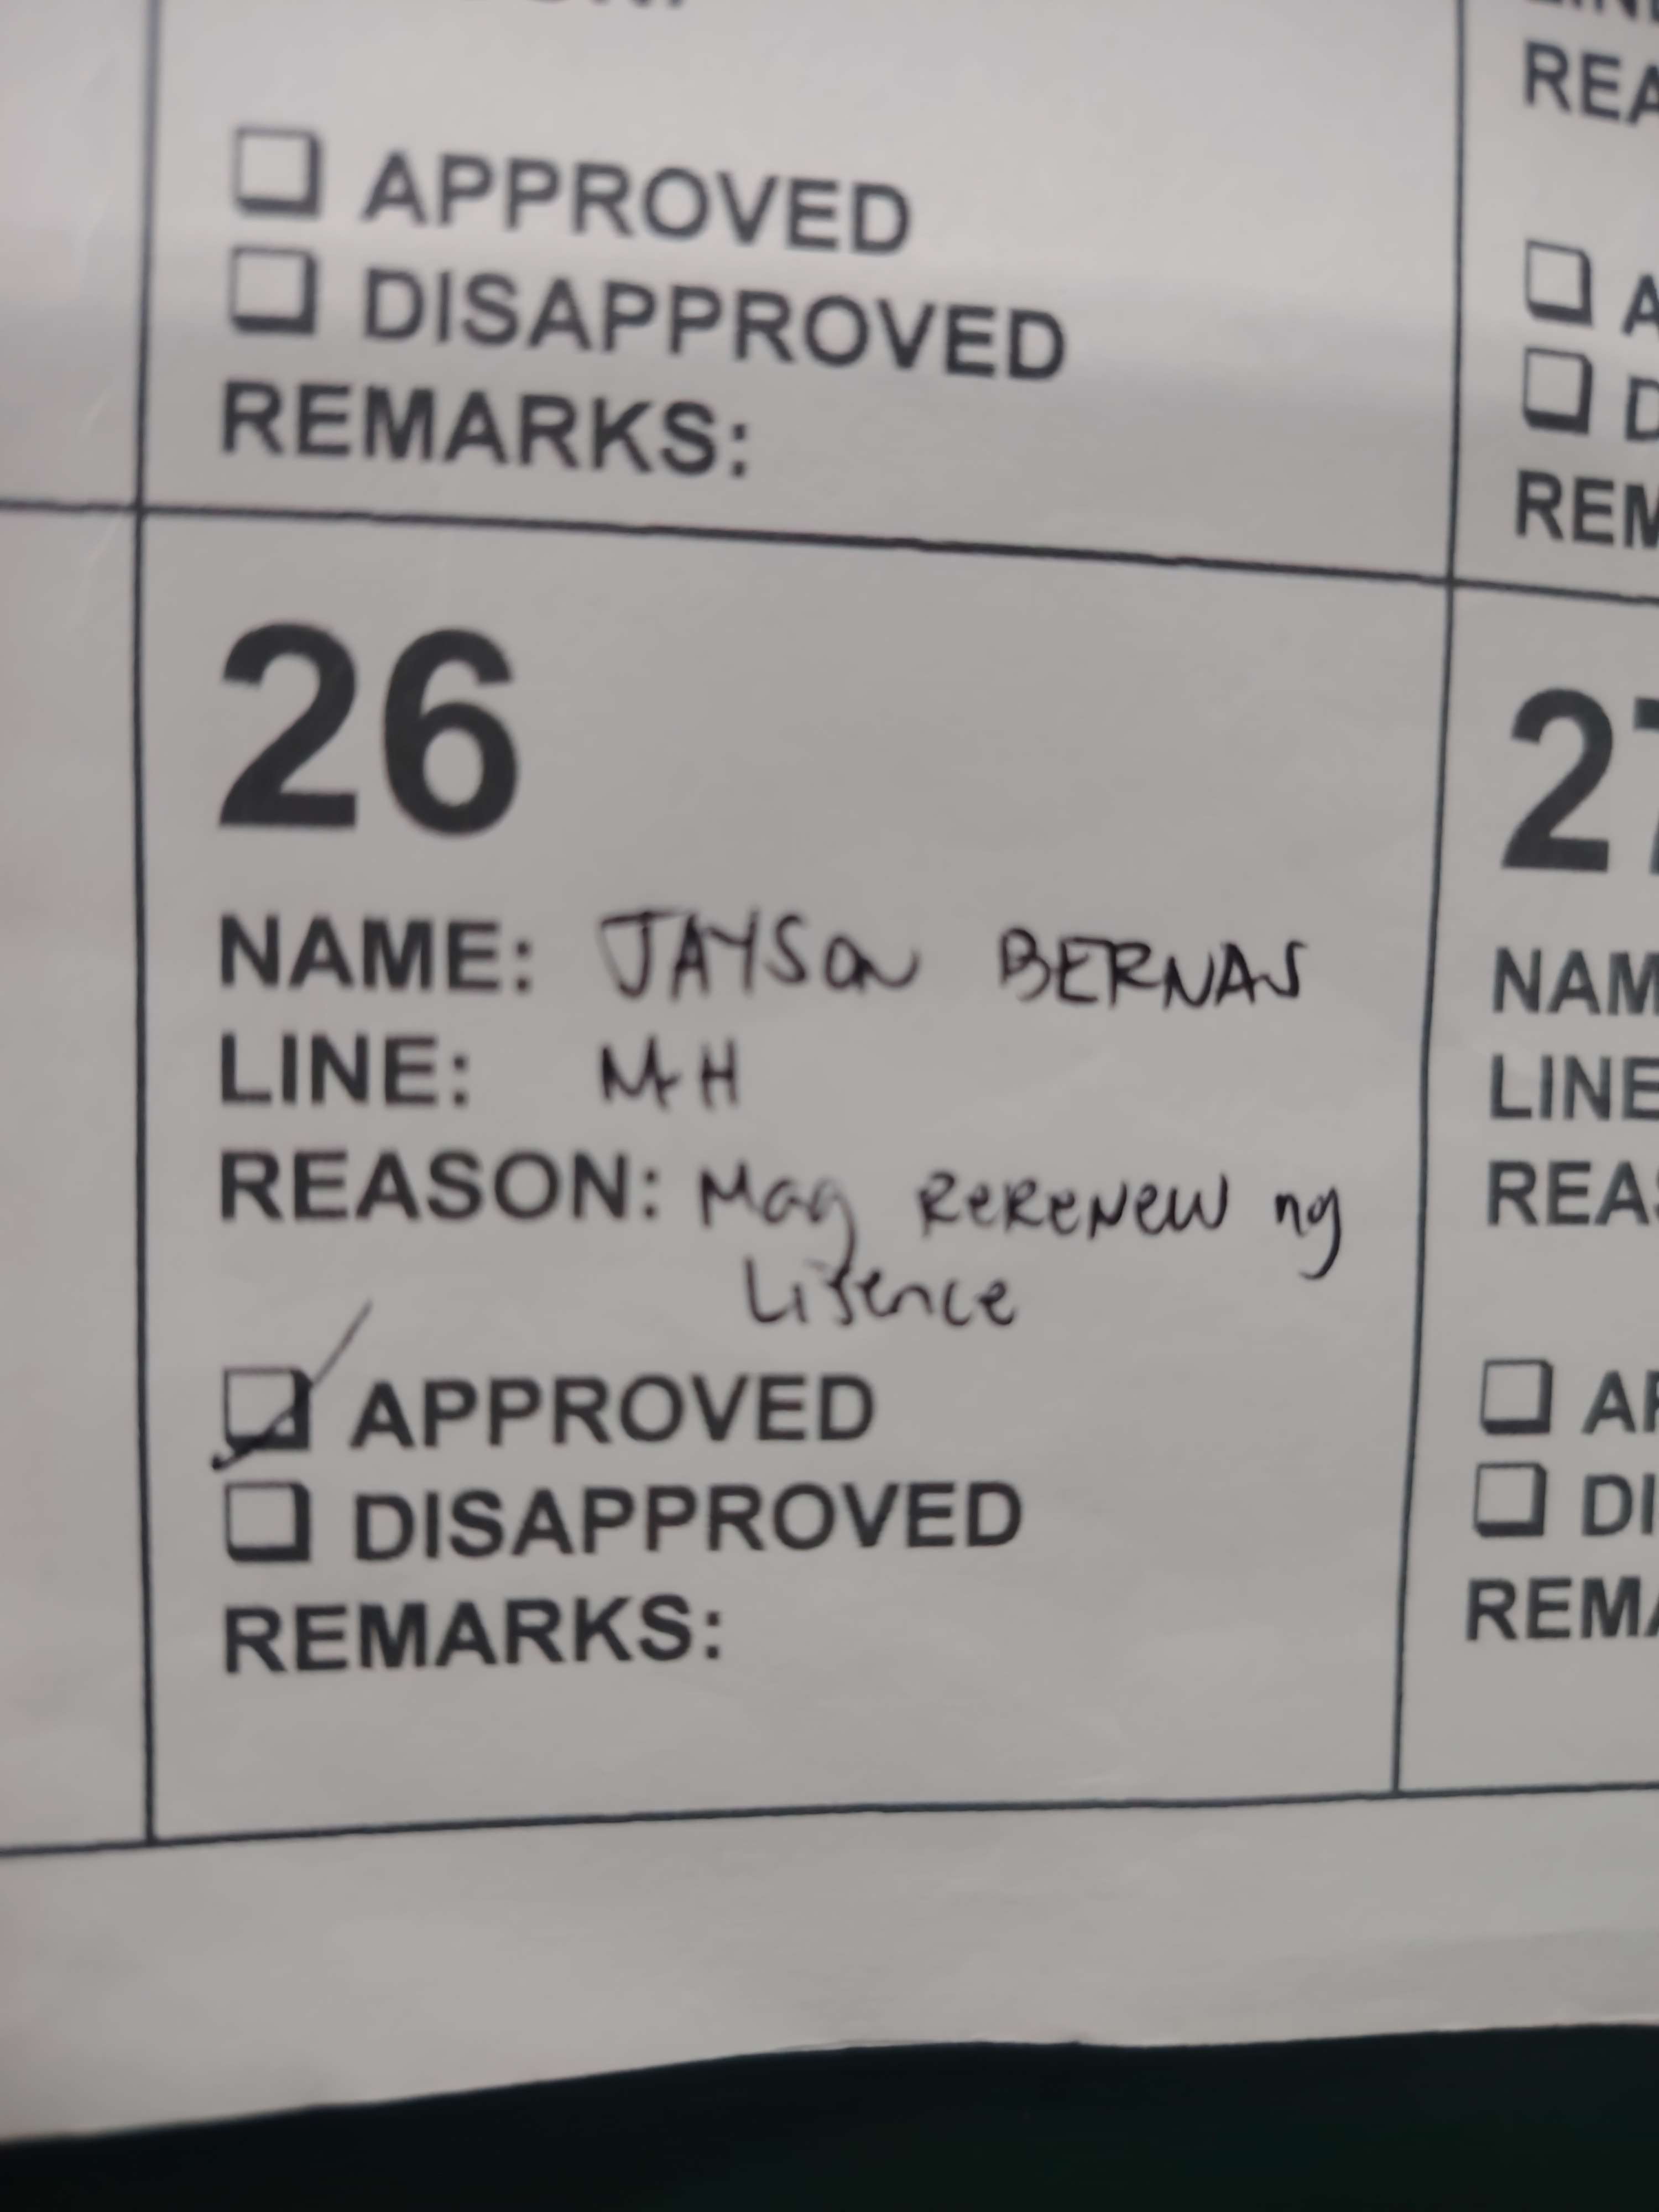 REA
APPROVED
DISAPPROVED
REMARKS:
REM
26
NAME: JAYSON BERNAS
LINE: MH
REASON: Mag ReReNew ng
Lisence
APPROVED
DISAPPROVED
REMARKS:
27
NAM
LINE
REAS
AP
DI
REMA